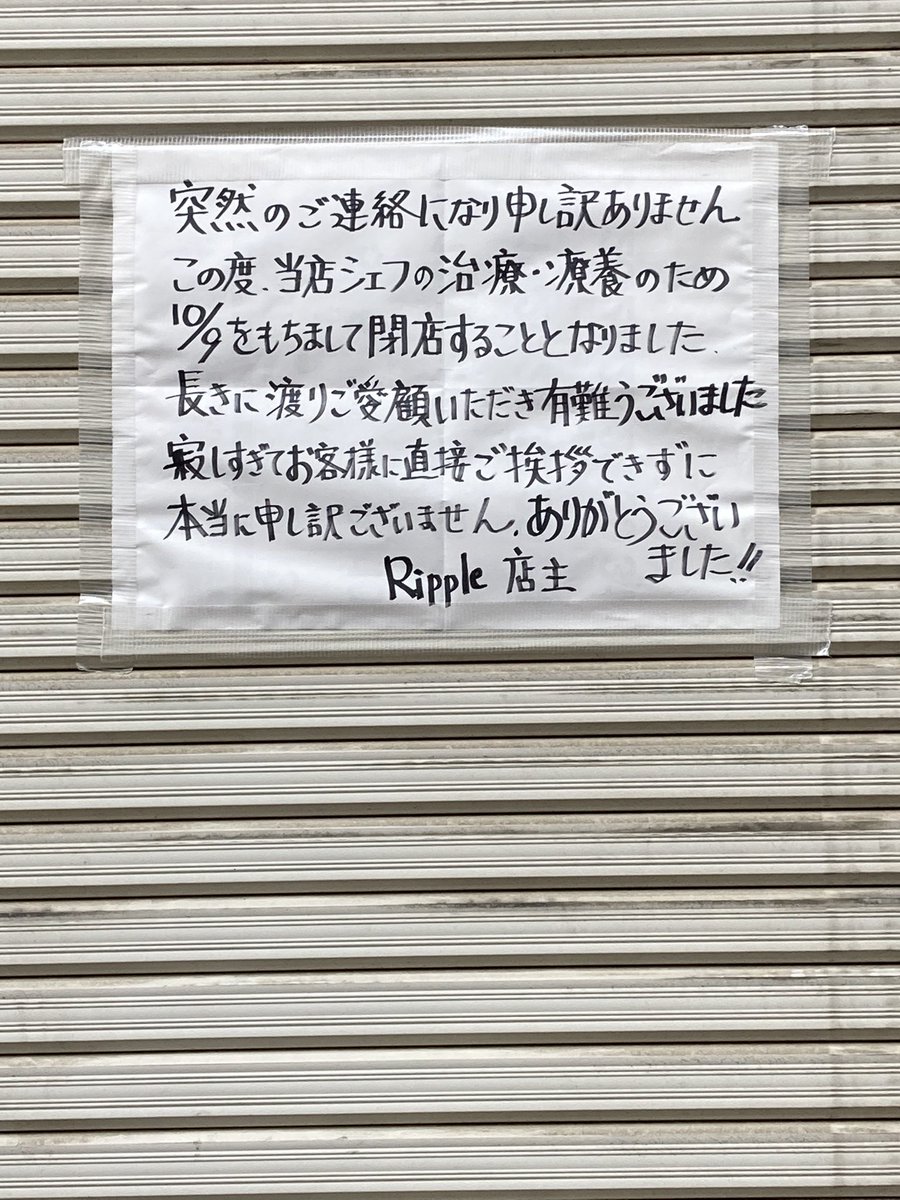 突然のご連絡になり申し訳ありません
この度、当店シェフの治療・療養のため
10/9をもちまして閉店することとなりました、
長きに渡りご愛顧いただき有難うございました
寂しすぎてお客様に直接ご挨拶できずに
本当に申し訳ございません、ありがとうござい
ました!!
Ripple 店主